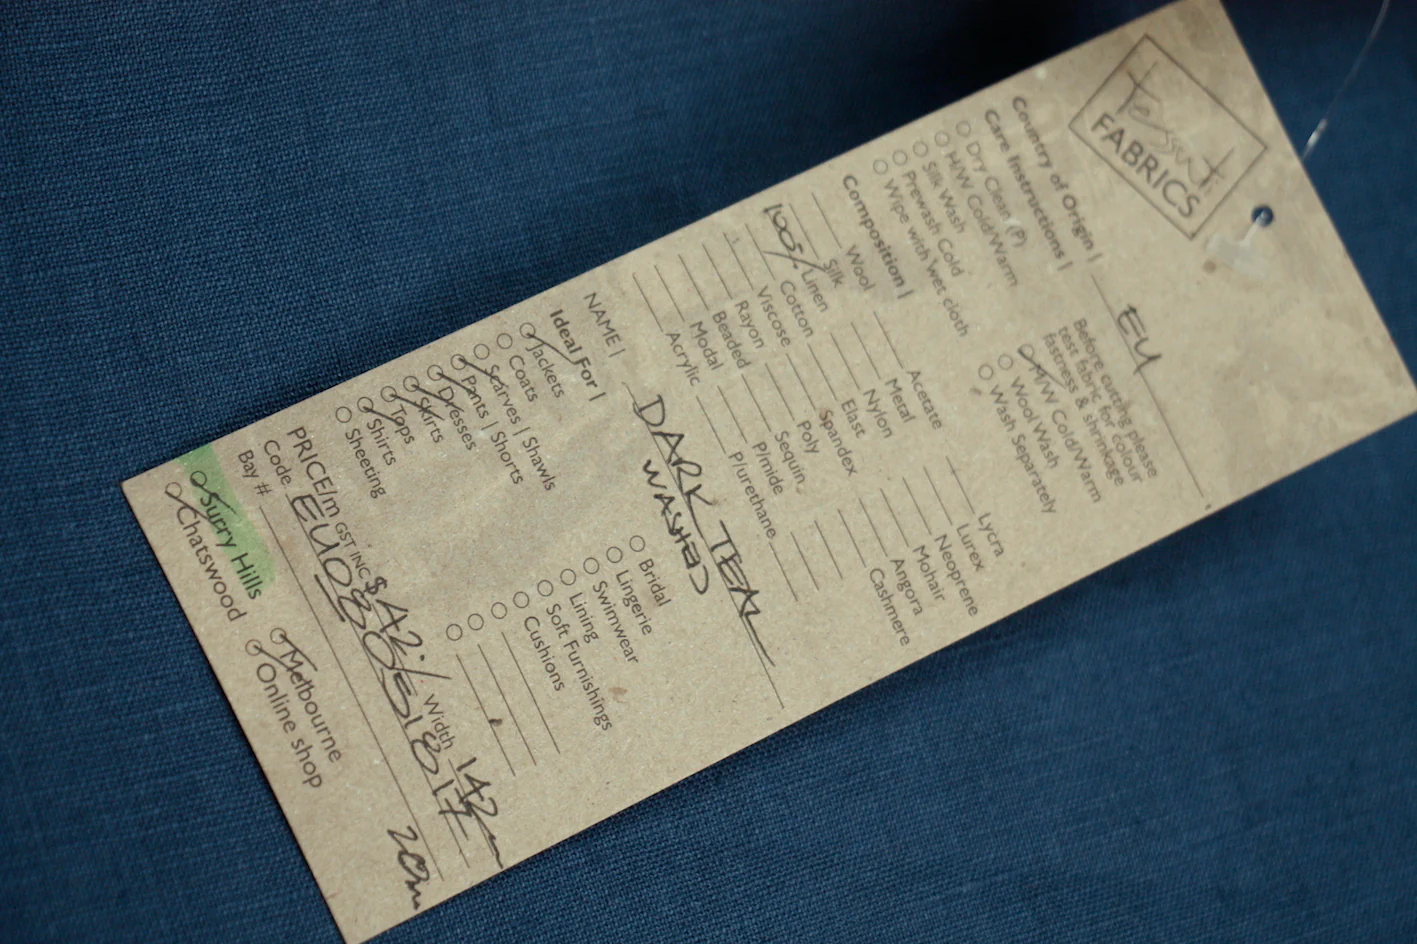 tessuti
FABRICS
Country of Origin | EU
Care Instructions |
Dry Clean (P)
H/W Cold/Warm
Silk Wash
Prewash Cold
Wipe with wet cloth
Before cutting please
test fabric for colour
fastness & shrinkage
H/W Cold/Warm
Wool Wash
Wash Separately
Composition |
Wool
Silk
100% Linen
Cotton
Viscose
Rayon
Beaded
Modal
Acrylic
Acetate
Metal
Nylon
Elast
Spandex
Poly
Sequin
P/mide
P/urethane
Lycra
Lurex
Neoprene
Mohair
Angora
Cashmere
NAME | DARK TEAL
WASHED
Ideal For |
Jackets
Coats
Scarves | Shawls
Pants | Shorts
Dresses
Skirts
Tops
Shirts
Sheeting
Bridal
Lingerie
Swimwear
Lining
Soft Furnishings
Cushions
PRICE/m GST INC $42.- Width 142cm
Code
Bay # 20m
Surry Hills
Chatswood
Melbourne
Online shop